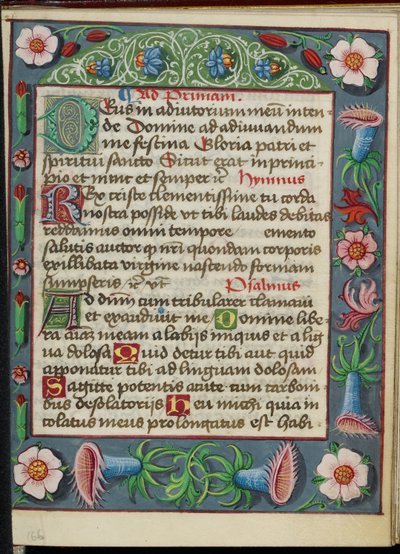 Ad Primam.
Deus in adiutorium meū inten-
de Domine ad adiuvandum
me festina Gloria patri et
spiritui sancto Sicut erat in princi-
pio et nunc et semper Hymnus
Rex criste clementissime tu corda
nostra posside vt tibi laudes debitas
reddamus omni tempore emento
salutis auctor q nri quondam corporis
ex illibata virgine nascendo formam
sumpseris vt Psalmus
Ad dnm cum tribularer clamaui
et exaudiuit me Domine libe-
ra aiaz meam a labijs iniquis et a lig
ua dolosa Quid detur tibi aut quid
apponatur tibi ad linguam dolosam
Sagitte potentis acute cum carboni-
bus desolatorijs Heu michi quia in
colatus meus prolongatus est habi
166